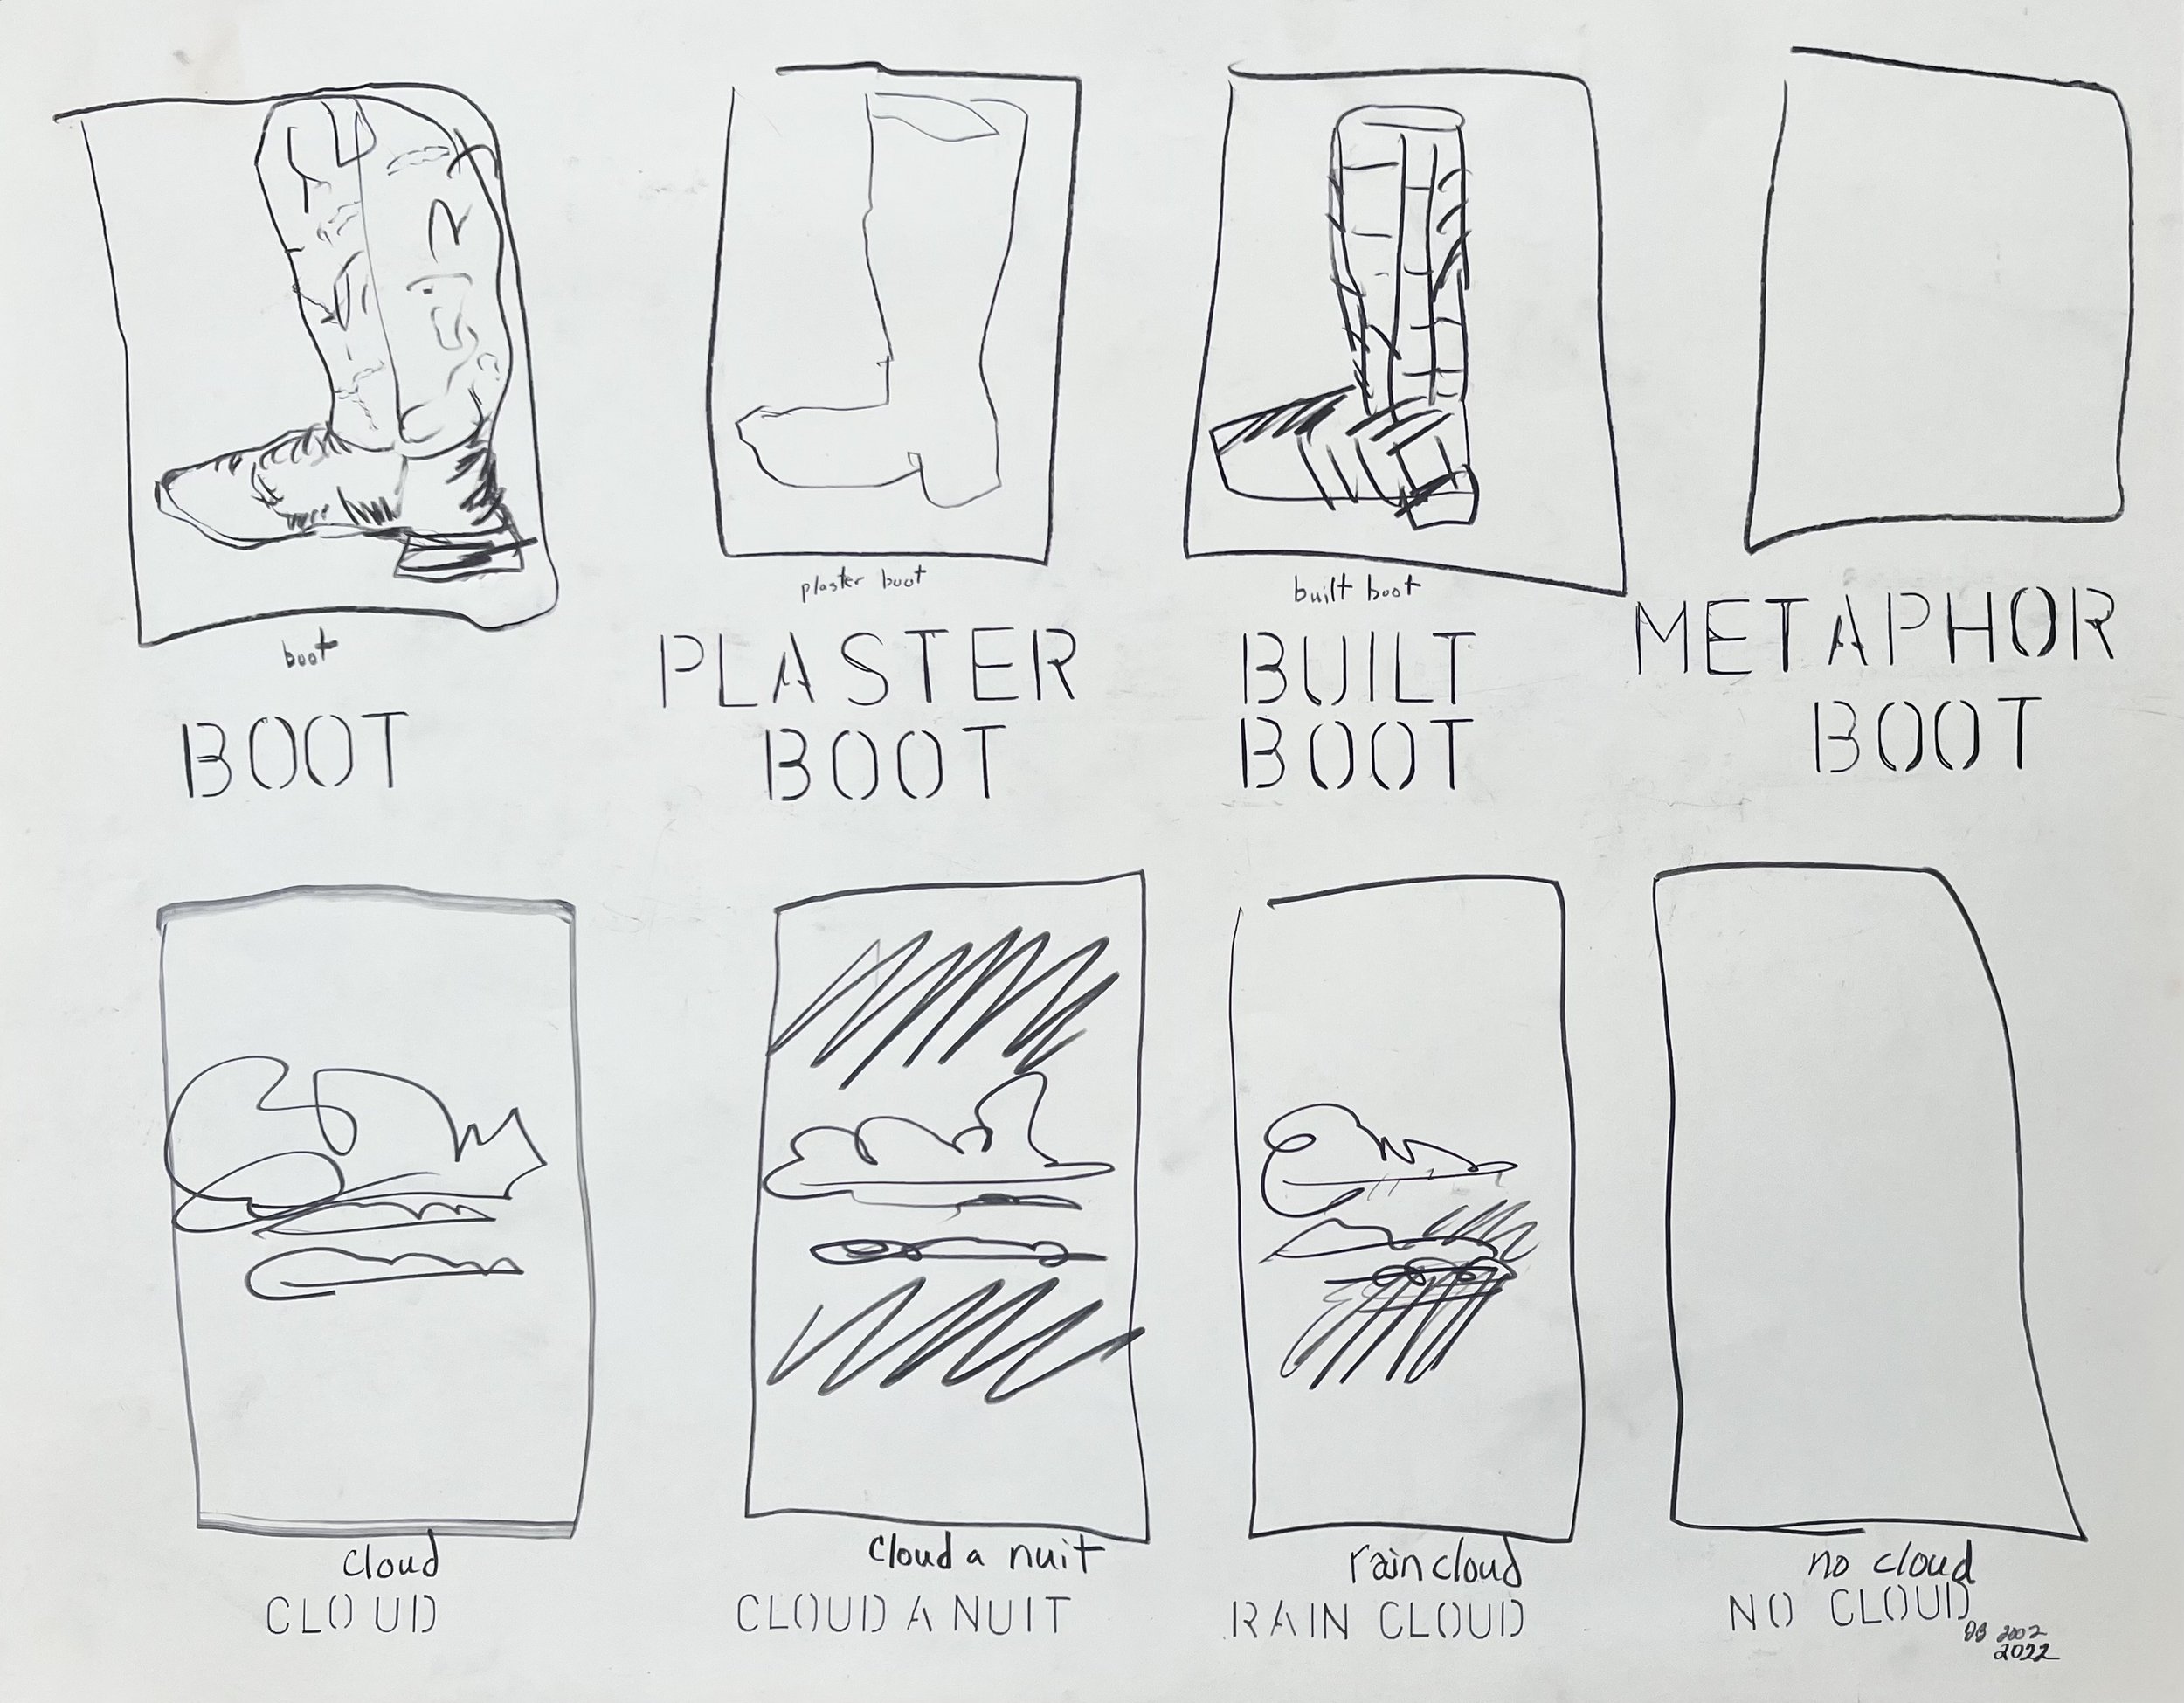 boot
BOOT
plaster boot
PLASTER
BOOT
built boot
BUILT
BOOT
METAPHOR
BOOT
cloud
CLOUD
cloud a nuit
CLOUD A NUIT
rain cloud
RAIN CLOUD
no cloud
NO CLOUD
2002
2022